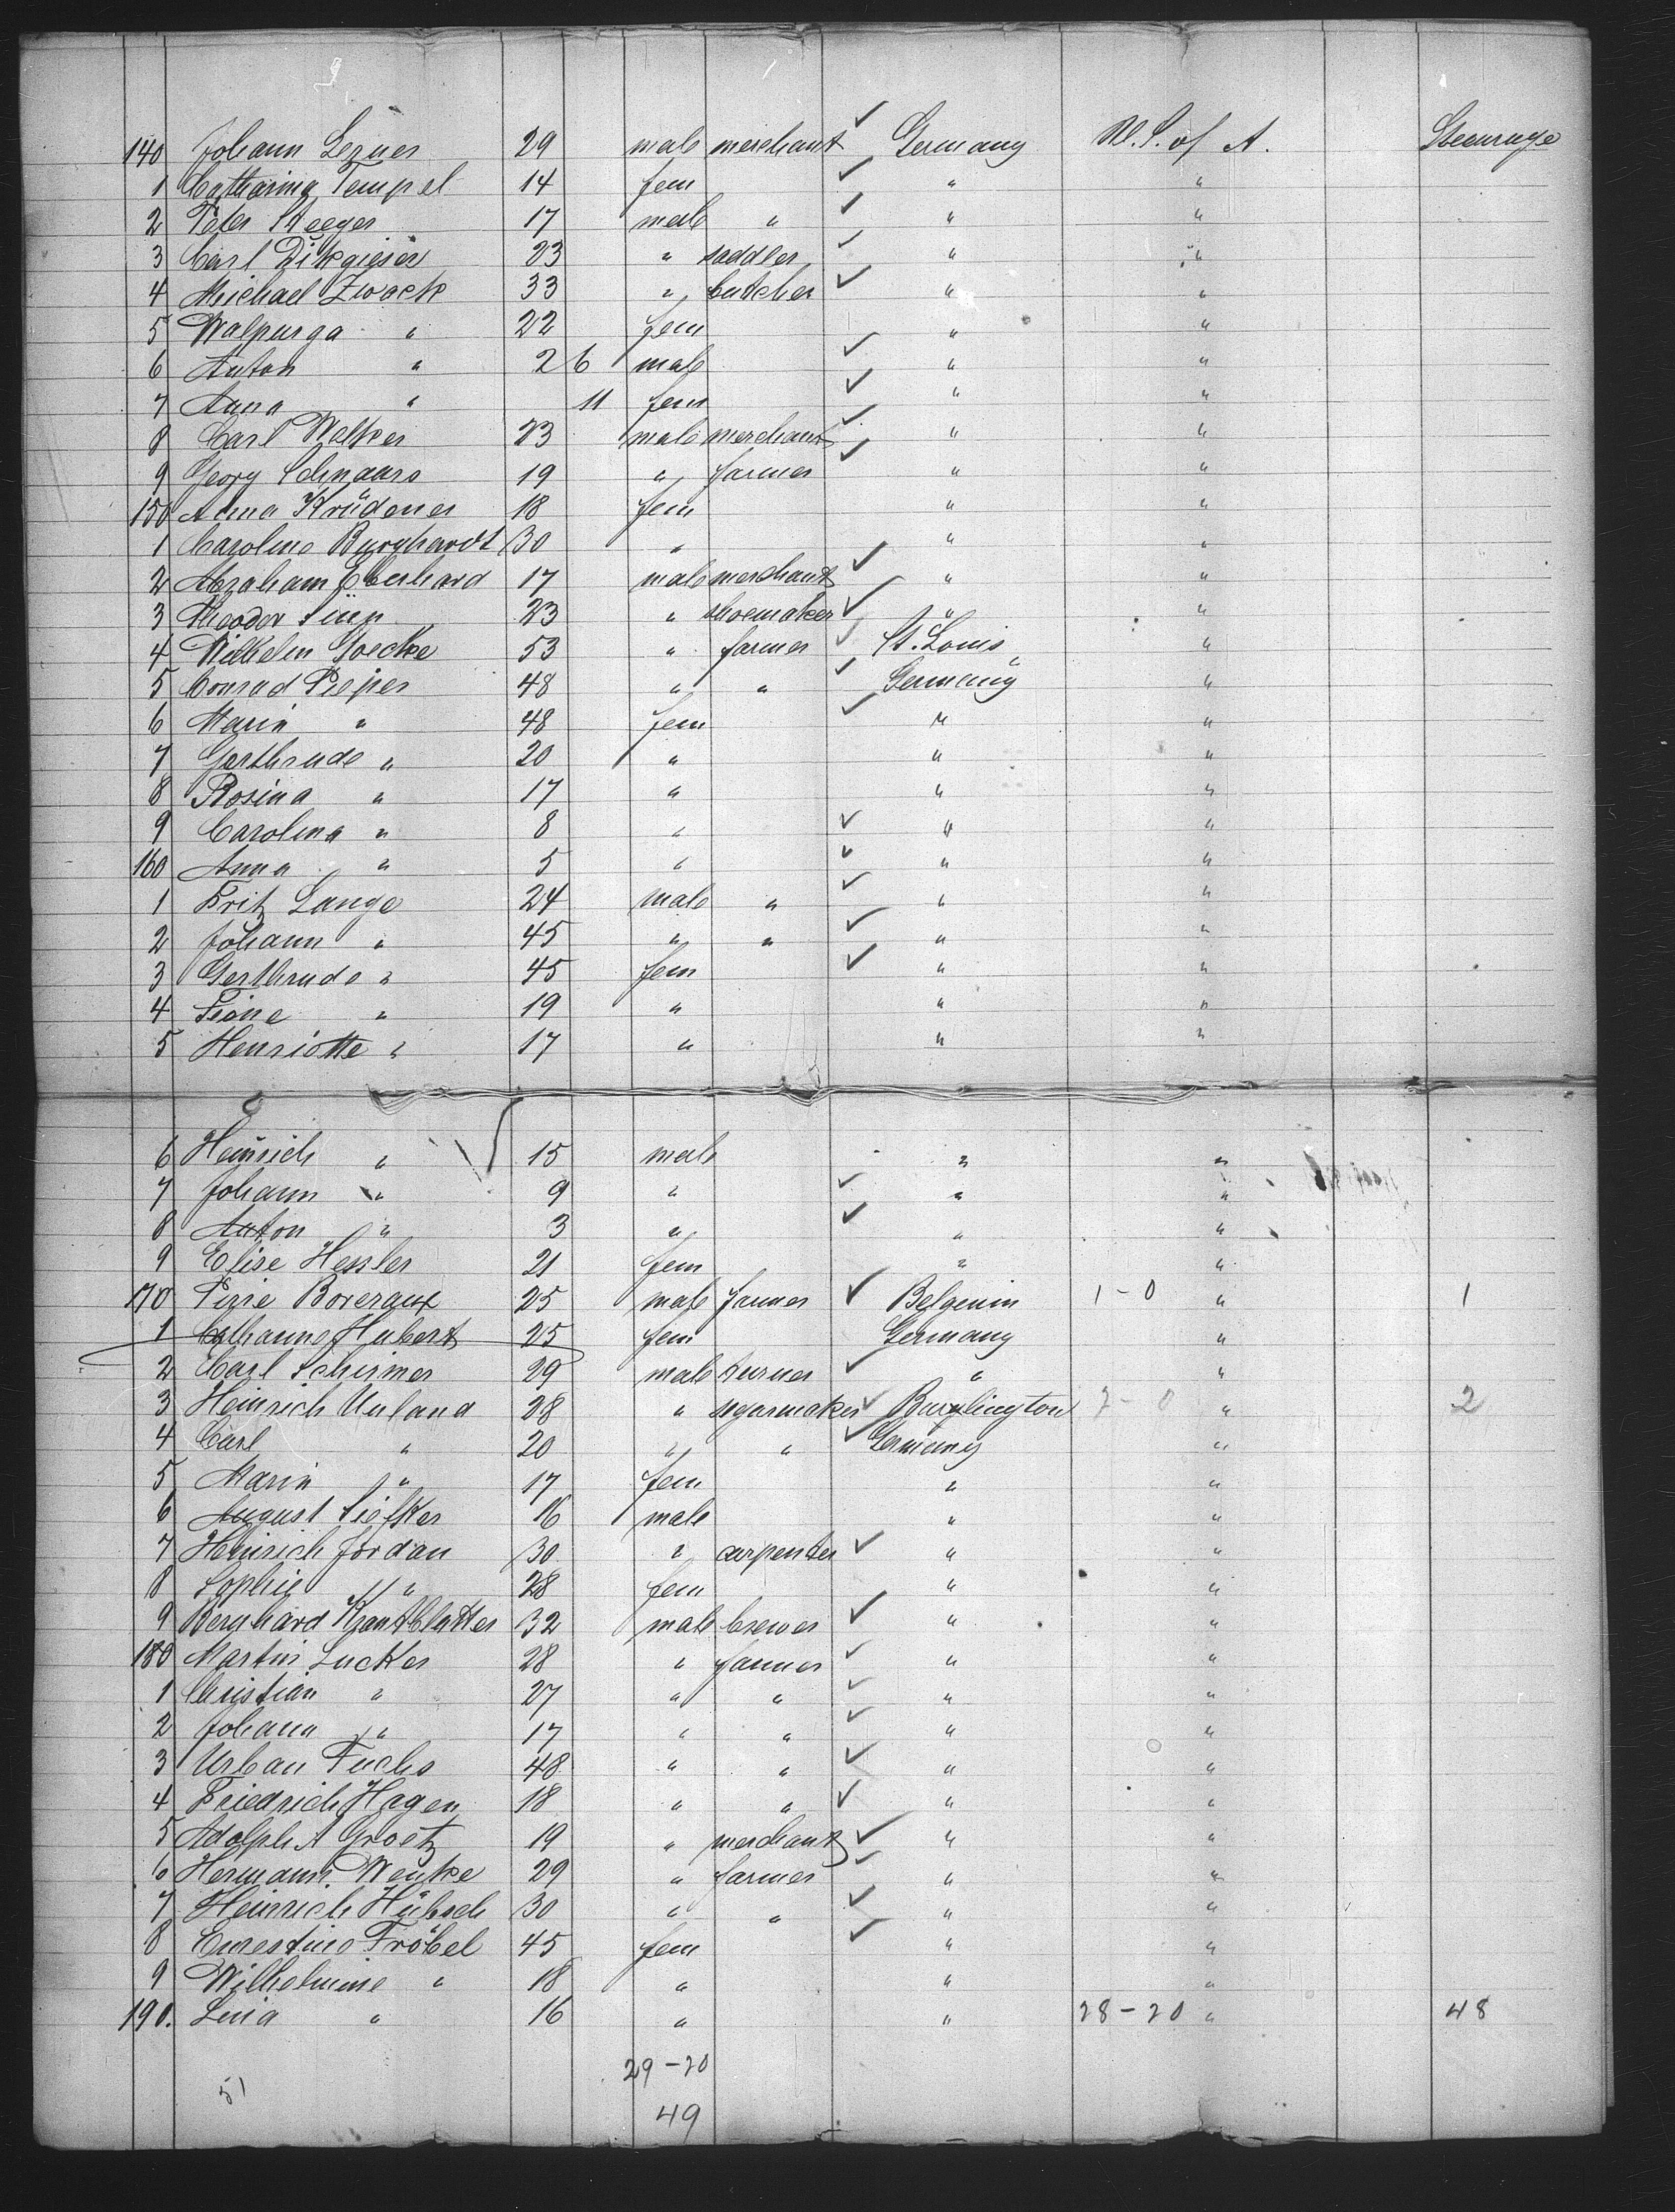 140 Johann Lezner 29 male merchant ✓ Germany U.S. of A. Steerage
1 Catharina Tempel 14 fem ✓ " "
2 Peter Steeger 17 male " ✓ " "
3 Carl Dikgieser 23 " saddler ✓ " "
4 Michael Zwack 33 " butcher ✓ " "
5 Walpurga " 22 fem " "
6 Anton " 2 6 male ✓ " "
7 Anna " 11 fem ✓ " "
8 Carl Welker 23 male merchant ✓ " "
9 Georg Schnaars 19 " farmer ✓ " "
150 Anna Krüdener 18 fem " "
1 Caroline Burghardt 30 " " "
2 Abraham Eberhard 17 male merchant ✓ " "
3 Theodor 23 " shoemaker ✓ " "
4 Wilhelm Goecke 53 " farmer ✓ St. Louis "
5 Conrad Pieper 48 " " ✓ Germany "
6 Maria " 48 fem ✓ " "
7 Gerthrude " 20 " " "
8 Rosina " 17 " " "
9 Carolina " 8 " ✓ " "
160 Anna " 5 " ✓ " "
1 Fritz Lange 24 male " ✓ " "
2 Johann " 45 " " ✓ " "
3 Gerthrude " 45 fem ✓ " "
4 " 19 " " "
5 Henriette " 17 " " "
6 Heinrich " 15 male " "
7 Johann " 9 " ✓ " "
8 Anton " 3 " ✓ " "
9 Elise Hessler 21 fem " "
170 Boveraux 25 male farmer ✓ Belgium 1-0 " 1
1 Catharine Hubert 25 fem Germany "
2 Carl Schirmer 29 male turner ✓ " "
3 Heinrich Unland 28 " segarmaker ✓ Burlington 2-0 " 2
4 Carl " 20 " " ✓ Germany "
5 Maria " 17 fem " "
6 August Siefker 16 male " "
7 Heinrich Jordan 30 " carpenter ✓ " "
8 Sophie " 28 fem " "
9 Bernhard Krantblatter 32 male brewer ✓ " "
180 Martin Lucker 28 " farmer ✓ " "
1 Christian " 27 " " ✓ " "
2 Johann " 17 " " ✓ " "
3 Urban Fuchs 48 " " ✓ " "
4 Friedrich Hagen 18 " " ✓ " "
5 Adolph A Groetz 19 " merchant ✓ " "
6 Hermann Wenke 29 " farmer ✓ " "
7 Heinrich Hübsch 30 " " ✓ " "
8 Ernestine Fröbel 45 fem ✓ " "
9 Wilhelmine " 18 " " "
190. Lina " 16 " " 28-20 " 48
29-20
51
49